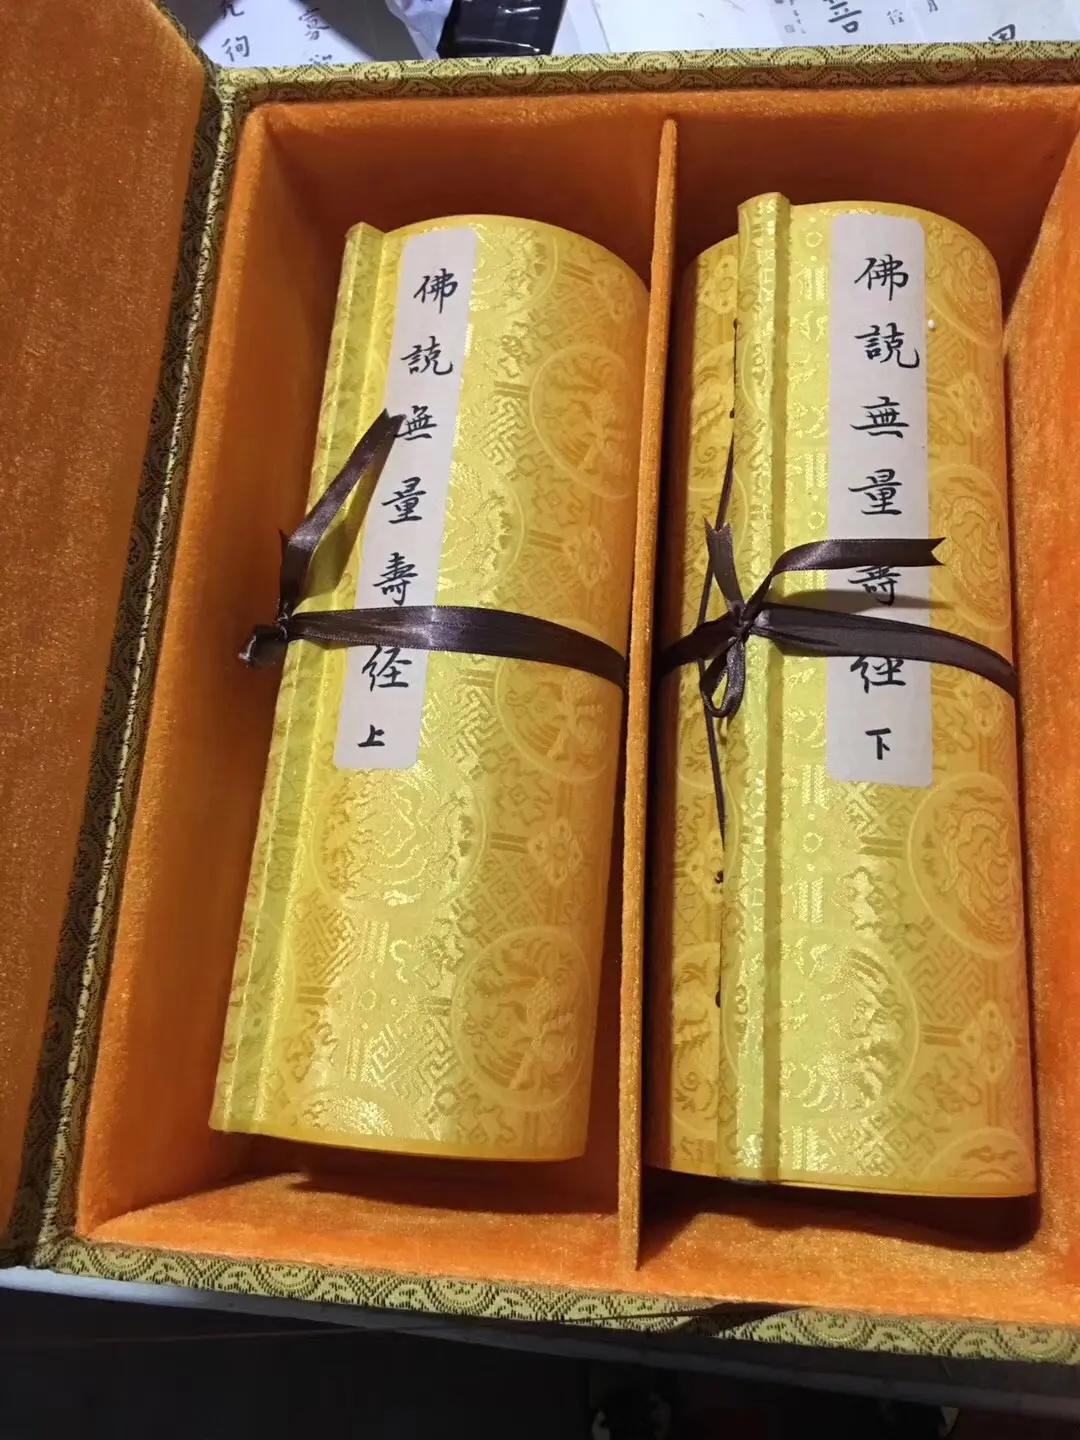 佛說無量壽经上
佛說無量壽经下